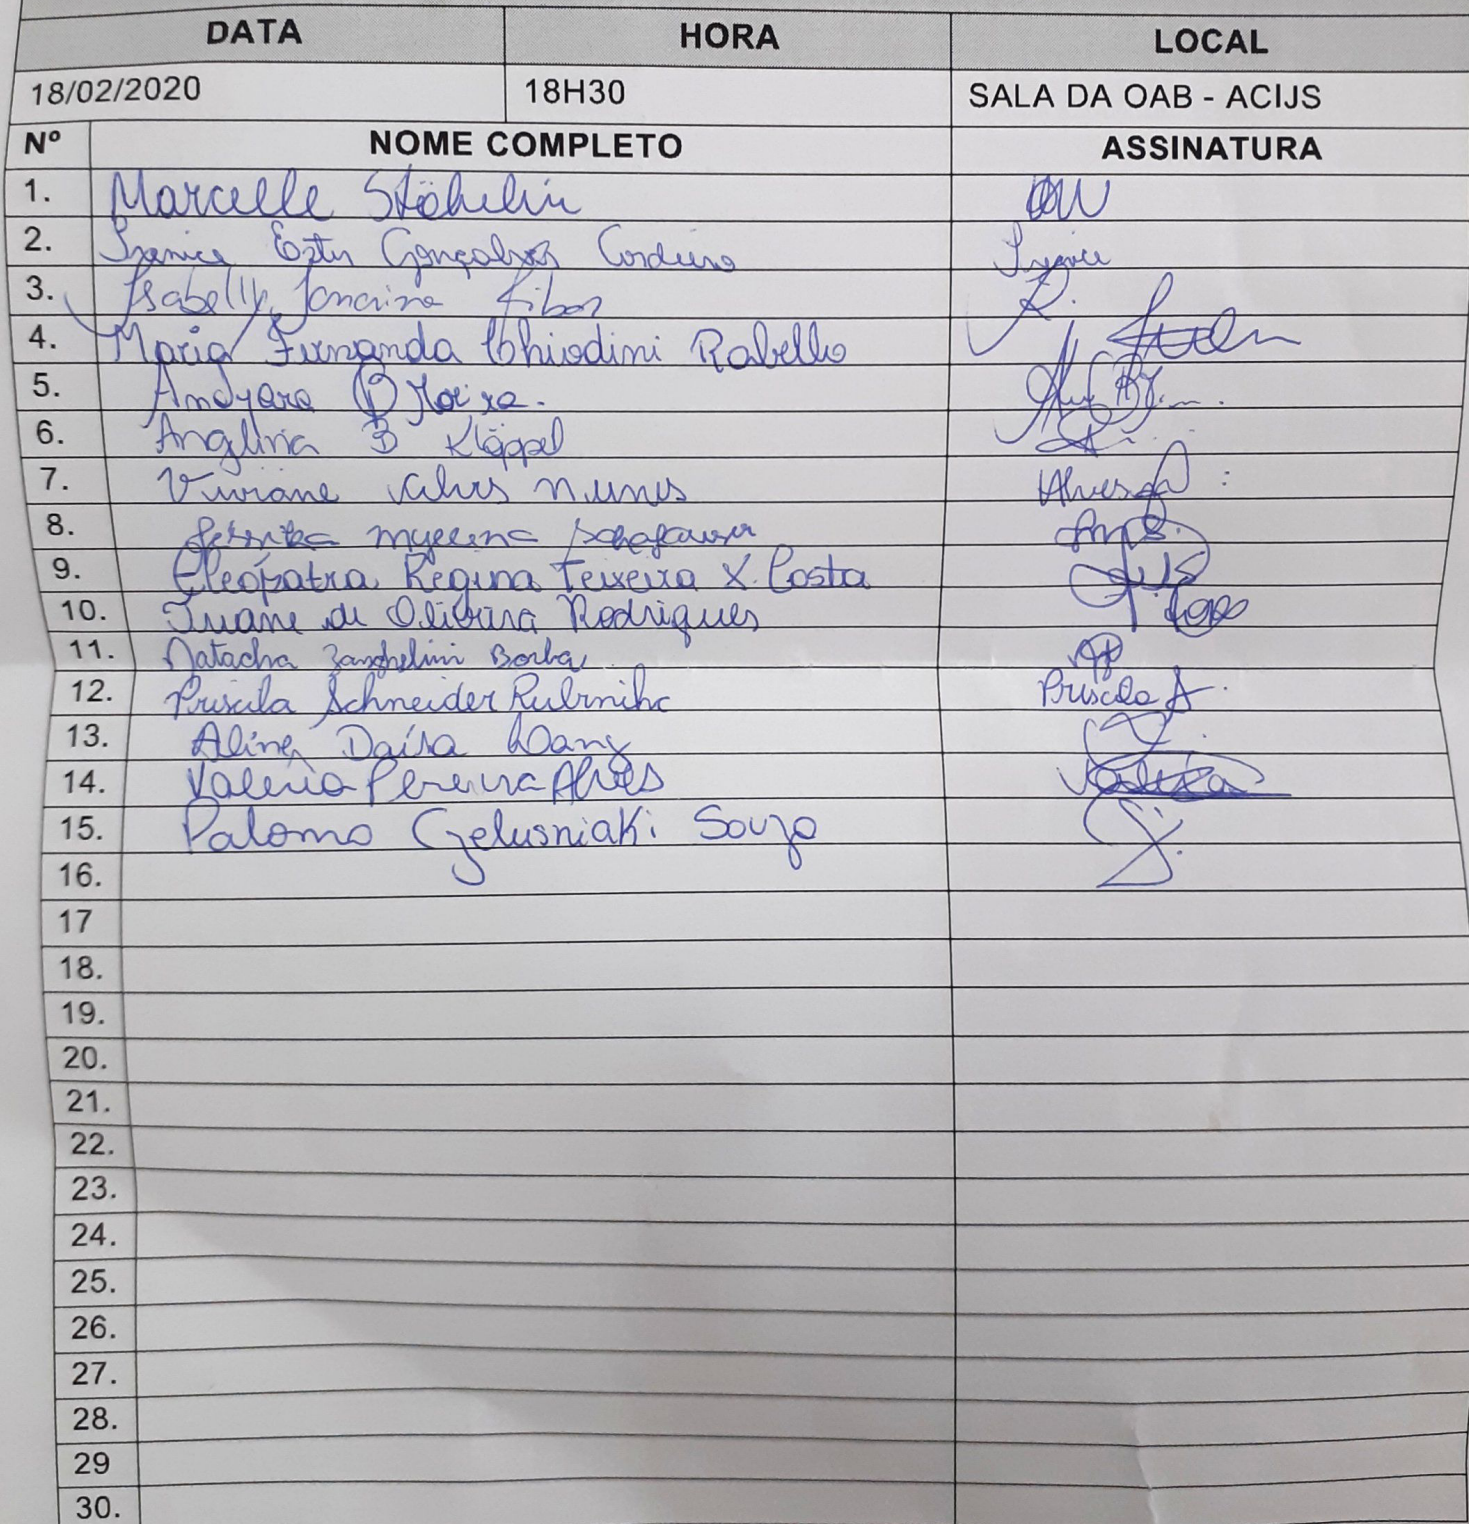 DATA HORA LOCAL
18/02/2020 18H30 SALA DA OAB - ACIJS
Nº NOME COMPLETO ASSINATURA
1. Marcelle Stähelin
2. Ester Gonçalves Cordeiro
3. Isabelly Janaina
4. Maria Fernanda Chiodini Rabello
5. Andyara
6. Angelina B Klöppel
7. Viviane Alves Nunes Alves
8.
9. Cleópatra Regina Teixeira X. Costa
10. Tuane de Oliveira Rodrigues
11. Natacha Zanghelini Borba
12. Priscila Schneider Priscila S.
13. Aline Daísa
14. Valéria Pereira Alves Valéria
15. Paloma Gelusniaki Souza
16.
17
18.
19.
20.
21.
22.
23.
24.
25.
26.
27.
28.
29
30.